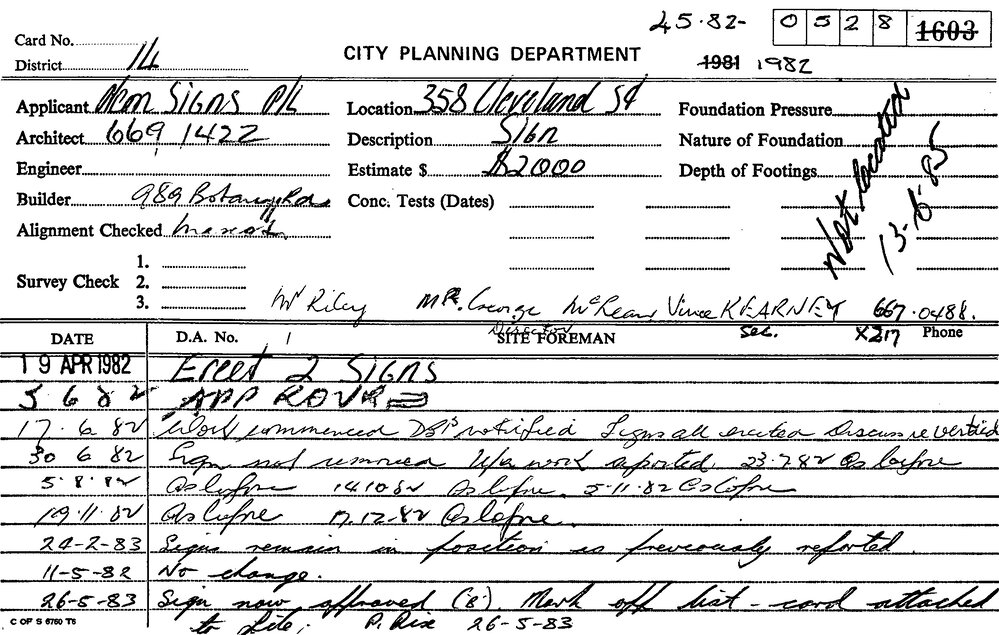 45·82- 0528 1603
Card No.
District 14
CITY PLANNING DEPARTMENT
1981 1982
Applicant Signs P/L Location 358 Cleveland St Foundation Pressure
Architect 669 1422 Description Sign Nature of Foundation
Engineer Estimate $ $2000 Depth of Footings
Builder 989 Botany Road Conc. Tests (Dates)
Not located 13-6-85
Alignment Checked Mascot
1.
Survey Check 2.
3.
Mr Riley Mr George McLean Vince KEARNEY 667·0488.
DIRECTOR Sec. X217
DATE D.A. No. SITE FOREMAN Phone
19 APR 1982 Erect 2 Signs
5 6 82 APPROVED
17·6·82 Work commenced notified Signs all erected
30 6 82 Sign not removed work reported. 23·7·82 As before
5·8·82 As before 14·10·82 As before. 5·11·82 As before
19·11·82 As before 17·12·82 As before.
24-2-83 Signs remain in position as previously reported.
11-5-82 No change.
26-5-83 Sign now approved (8). Mark off list - card attached
to file; P. Rix 26-5-83
C OF S 6760 T6